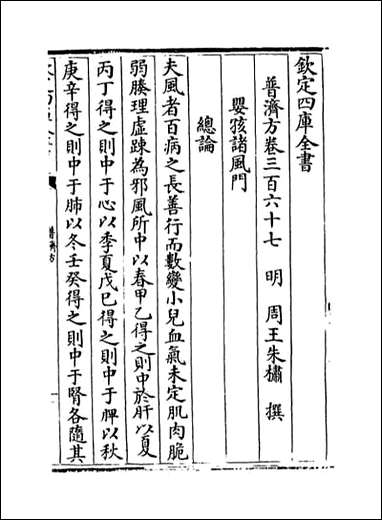 欽定四庫全書
普濟方卷三百六十七　明　周王朱橚　撰
嬰孩諸風門
總論
夫風者百病之長善行而數變小兒血氣未定肌肉脆
弱腠理虛踈為邪風所中以春甲乙得之則中於肝以夏
丙丁得之則中于心以季夏戊巳得之則中于脾以秋
庚辛得之則中于肺以冬壬癸得之則中于腎各隨其
普濟方